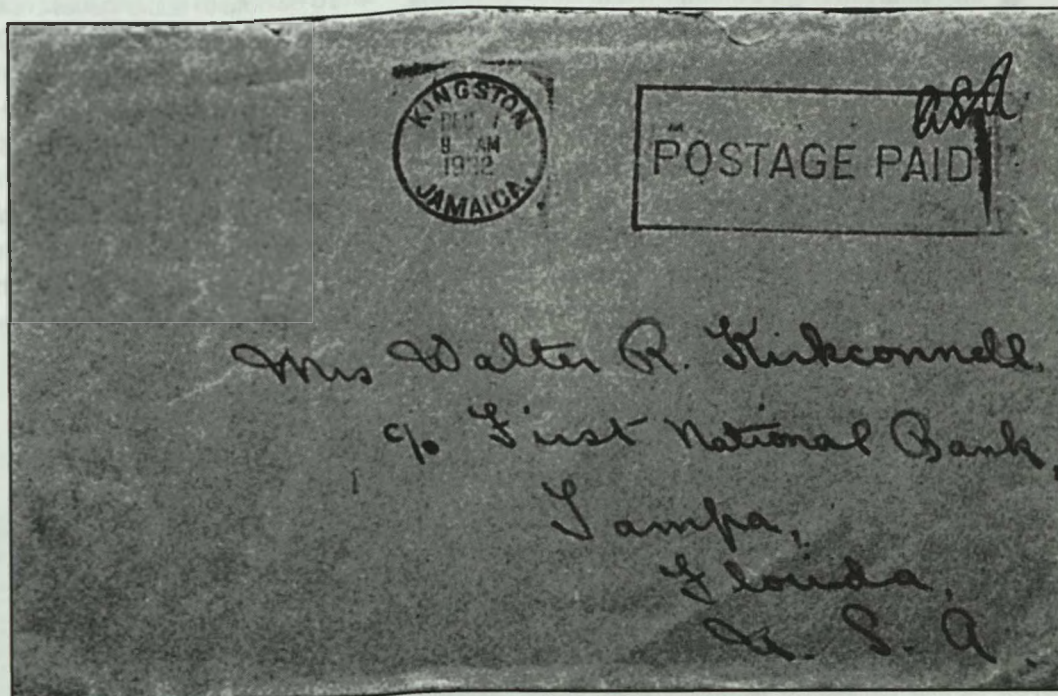 KINGSTON
9 AM
1932
JAMAICA.
POSTAGE PAID
Mrs Walter R. Kirkconnell,
c/o First National Bank,
Tampa,
Florida,
U. S. A.